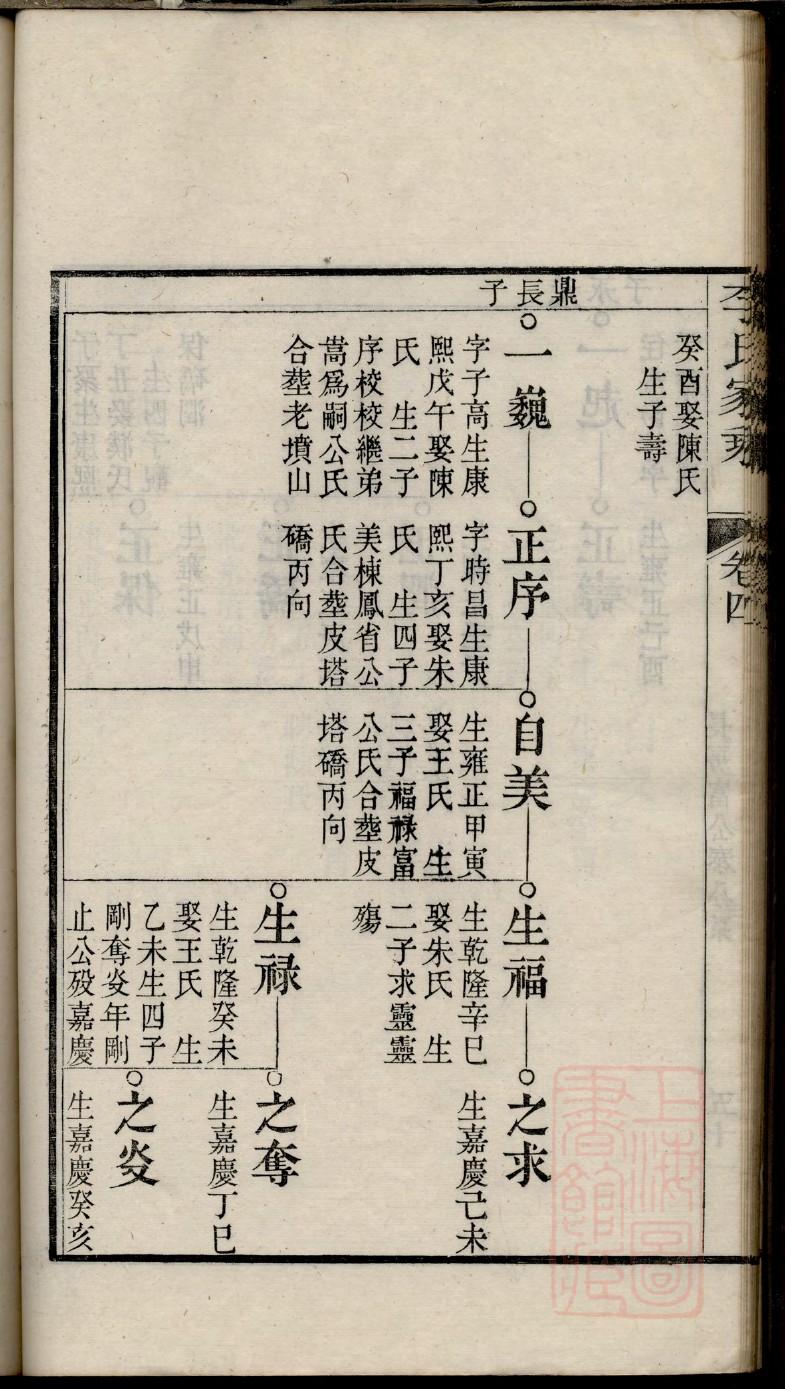 李氏家乘
卷四
癸酉娶陳氏
生子壽
鼎長子
一巍
字子高生康
熙戊午娶陳
氏 生二子
序校校繼弟
嵩爲嗣公氏
合塟老墳山
正序
字時昌生康
熙丁亥娶朱
氏 生四子
美棟鳳省公
氏合塟皮塔
磽丙向
自美
生雍正甲寅
娶王氏 生
三子福祿富
公氏合塟皮
塔磽丙向
生福
生乾隆辛巳
娶朱氏 生
二子求靈靈
殤
之求
生嘉慶己未
生祿
生乾隆癸未
娶王氏 生
乙未生四子
剛奪炎年剛
止公殁嘉慶
之奪
生嘉慶丁巳
之炎
生嘉慶癸亥